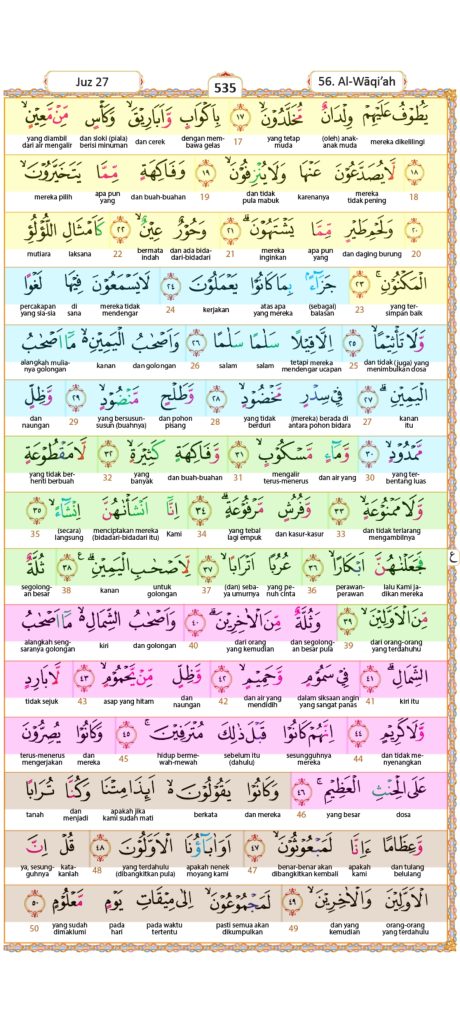 Juz 27
535
56. Al-Wāqi‘ah
يَطُوْفُ عَلَيْهِمْ وِلْدَانٌ مُّخَلَّدُوْنَۙ ١٧ بِاَكْوَابٍ وَّاَبَارِيْقَۙ وَكَأْسٍ مِّنْ مَّعِيْنٍۙ
mereka dikelilingi (oleh) anak-anak muda yang tetap muda 17 dengan membawa gelas dan cerek dan sloki (piala) berisi minuman yang diambil dari air mengalir
١٨ لَّا يُصَدَّعُوْنَ عَنْهَا وَلَا يُنْزِفُوْنَۙ ١٩ وَفَاكِهَةٍ مِّمَّا يَتَخَيَّرُوْنَۙ
18 mereka tidak pening karenanya dan tidak pula mabuk 19 dan buah-buahan apa pun yang mereka pilih
٢٠ وَلَحْمِ طَيْرٍ مِّمَّا يَشْتَهُوْنَۗ ٢١ وَحُوْرٌ عِيْنٌۙ ٢٢ كَاَمْثَالِ اللُّؤْلُؤِ
20 dan daging burung apa pun yang mereka inginkan 21 dan ada bidadari-bidadari bermata indah 22 laksana mutiara
الْمَكْنُوْنِۚ ٢٣ جَزَاۤءًۢ بِمَا كَانُوْا يَعْمَلُوْنَ ٢٤ لَا يَسْمَعُوْنَ فِيْهَا لَغْوًا
yang tersimpan baik 23 (sebagai) balasan atas apa yang mereka kerjakan 24 mereka tidak mendengar di sana percakapan yang sia-sia
وَّلَا تَأْثِيْمًاۙ ٢٥ اِلَّا قِيْلًا سَلٰمًا سَلٰمًا ٢٦ وَاَصْحٰبُ الْيَمِيْنِ ەۙ مَآ اَصْحٰبُ
dan tidak (juga) yang menimbulkan dosa 25 tetapi mereka mendengar ucapan salam salam 26 dan golongan kanan alangkah mulianya golongan
الْيَمِيْنِۗ ٢٧ فِيْ سِدْرٍ مَّخْضُوْدٍۙ ٢٨ وَّطَلْحٍ مَّنْضُوْدٍۙ ٢٩ وَّظِلٍّ
kanan itu 27 (mereka) berada di antara pohon bidara yang tidak berduri 28 dan pohon pisang yang bersusun-susun (buahnya) 29 dan naungan
مَّمْدُوْدٍۙ ٣٠ وَّمَاۤءٍ مَّسْكُوْبٍۙ ٣١ وَّفَاكِهَةٍ كَثِيْرَةٍۙ ٣٢ لَّا مَقْطُوْعَةٍ
yang terbentang luas 30 dan air yang mengalir terus-menerus 31 dan buah-buahan yang banyak 32 yang tidak berhenti berbuah
وَّلَا مَمْنُوْعَةٍۙ ٣٣ وَّفُرُشٍ مَّرْفُوْعَةٍۗ ٣٤ اِنَّآ اَنْشَأْنٰهُنَّ اِنْشَاۤءًۙ ٣٥
dan tidak terlarang mengambilnya 33 dan kasur-kasur yang tebal lagi empuk 34 Kami menciptakan mereka (bidadari-bidadari itu) (secara) langsung 35
فَجَعَلْنٰهُنَّ اَبْكَارًاۙ ٣٦ عُرُبًا اَتْرَابًاۙ ٣٧ لِّاَصْحٰبِ الْيَمِيْنِۗ ٣٨ ثُلَّةٌ
lalu Kami jadikan mereka perawan-perawan 36 yang penuh cinta (dan) sebaya umurnya 37 untuk golongan kanan 38 segolongan besar
ع
مِّنَ الْاَوَّلِيْنَۙ ٣٩ وَثُلَّةٌ مِّنَ الْاٰخِرِيْنَۗ ٤٠ وَاَصْحٰبُ الشِّمَالِ ەۙ مَآ اَصْحٰبُ
dari orang-orang yang terdahulu 39 dan segolongan besar pula dari orang yang kemudian 40 dan golongan kiri alangkah sengsaranya golongan
الشِّمَالِۗ ٤١ فِيْ سَمُوْمٍ وَّحَمِيْمٍۙ ٤٢ وَّظِلٍّ مِّنْ يَّحْمُوْمٍۙ ٤٣ لَّا بَارِدٍ
kiri itu 41 dalam siksaan angin yang sangat panas dan air yang mendidih 42 dan naungan asap yang hitam 43 tidak sejuk
وَّلَا كَرِيْمٍ ٤٤ اِنَّهُمْ كَانُوْا قَبْلَ ذٰلِكَ مُتْرَفِيْنَۚ ٤٥ وَكَانُوْا يُصِرُّوْنَ
dan tidak menyenangkan 44 sesungguhnya mereka sebelum itu (dahulu) hidup bermewah-mewah 45 dan mereka terus-menerus mengerjakan
عَلَى الْحِنْثِ الْعَظِيْمِۚ ٤٦ وَكَانُوْا يَقُوْلُوْنَ ەۙ اَىِٕذَا مِتْنَا وَكُنَّا تُرَابًا
dosa yang besar 46 dan mereka berkata apakah jika kami sudah mati dan menjadi tanah
وَّعِظَامًا ءَاِنَّا لَمَبْعُوْثُوْنَۙ ٤٧ اَوَاٰبَاۤؤُنَا الْاَوَّلُوْنَ ٤٨ قُلْ اِنَّ
dan tulang belulang apakah kami benar-benar akan dibangkitkan kembali 47 apakah nenek moyang kami yang terdahulu (dibangkitkan pula) 48 katakanlah ya, sesungguhnya
الْاَوَّلِيْنَ وَالْاٰخِرِيْنَۙ ٤٩ لَمَجْمُوْعُوْنَۙ اِلٰى مِيْقَاتِ يَوْمٍ مَّعْلُوْمٍ ٥٠
orang-orang yang terdahulu dan yang kemudian 49 pasti semua akan dikumpulkan pada waktu tertentu pada hari yang sudah dimaklumi 50